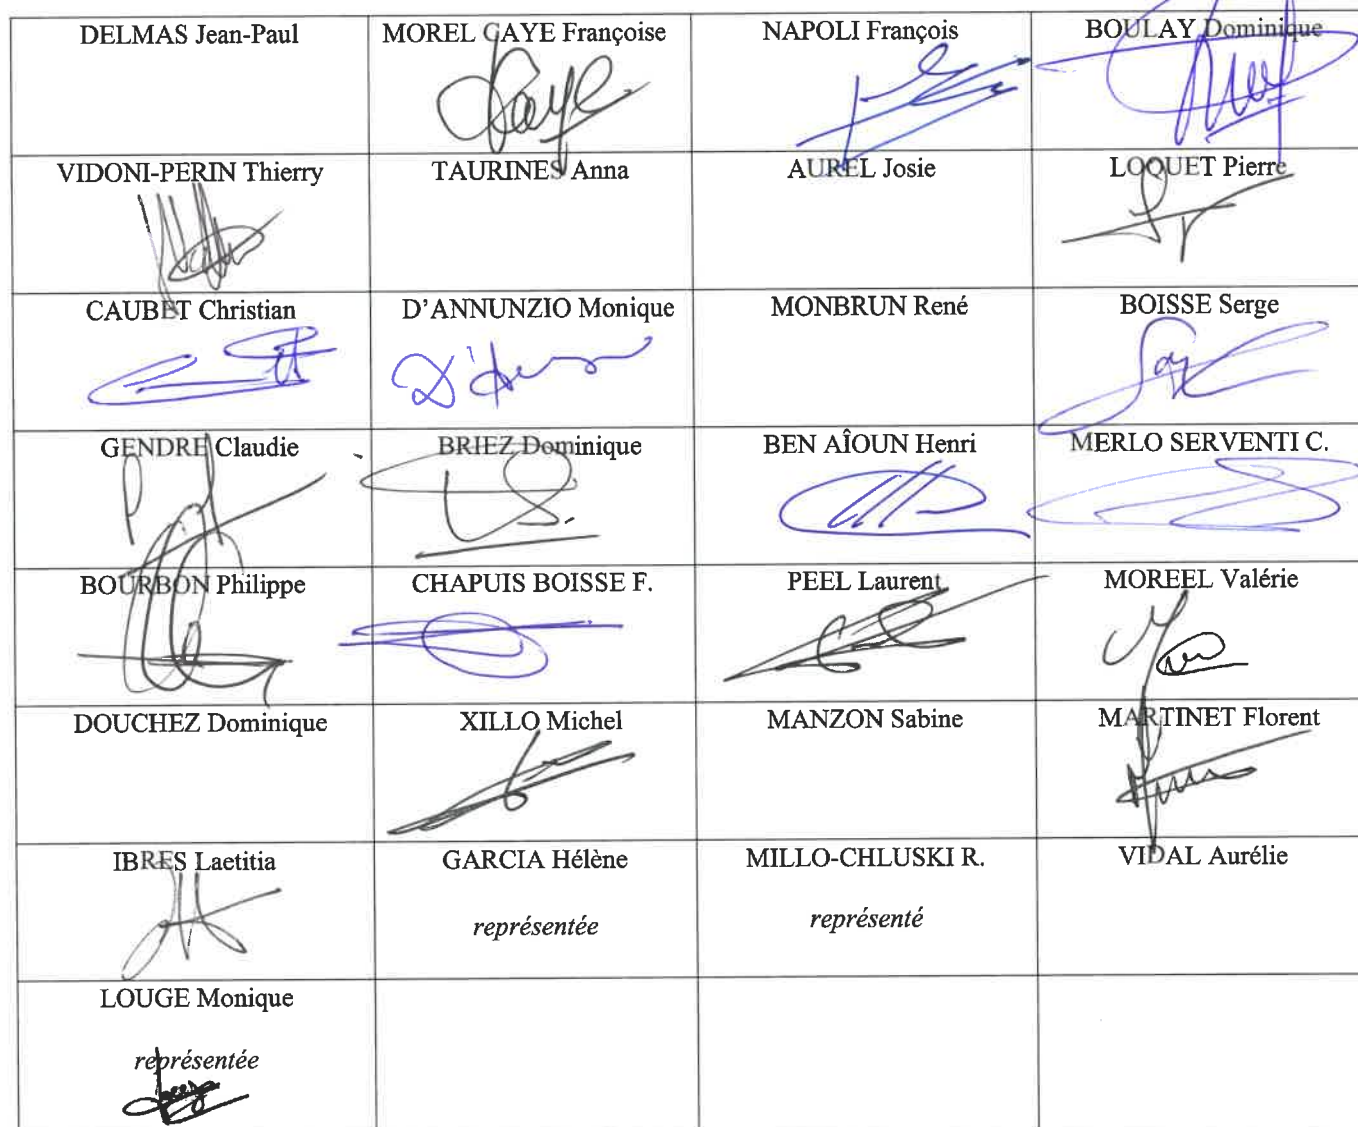 DELMAS Jean-Paul
MOREL CAYE Françoise
NAPOLI François
BOULAY Dominique
Caye
VIDONI-PERIN Thierry
TAURINES Anna
AUREL Josie
LOQUET Pierre
CAUBET Christian
D'ANNUNZIO Monique
MONBRUN René
BOISSE Serge
GENDRE Claudie
BRIEZ Dominique
BEN AÎOUN Henri
MERLO SERVENTI C.
BOURBON Philippe
CHAPUIS BOISSE F.
PEEL Laurent
MOREEL Valérie
DOUCHEZ Dominique
XILLO Michel
MANZON Sabine
MARTINET Florent
IBRES Laetitia
GARCIA Hélène
MILLO-CHLUSKI R.
VIDAL Aurélie
représentée
représenté
LOUGE Monique
représentée